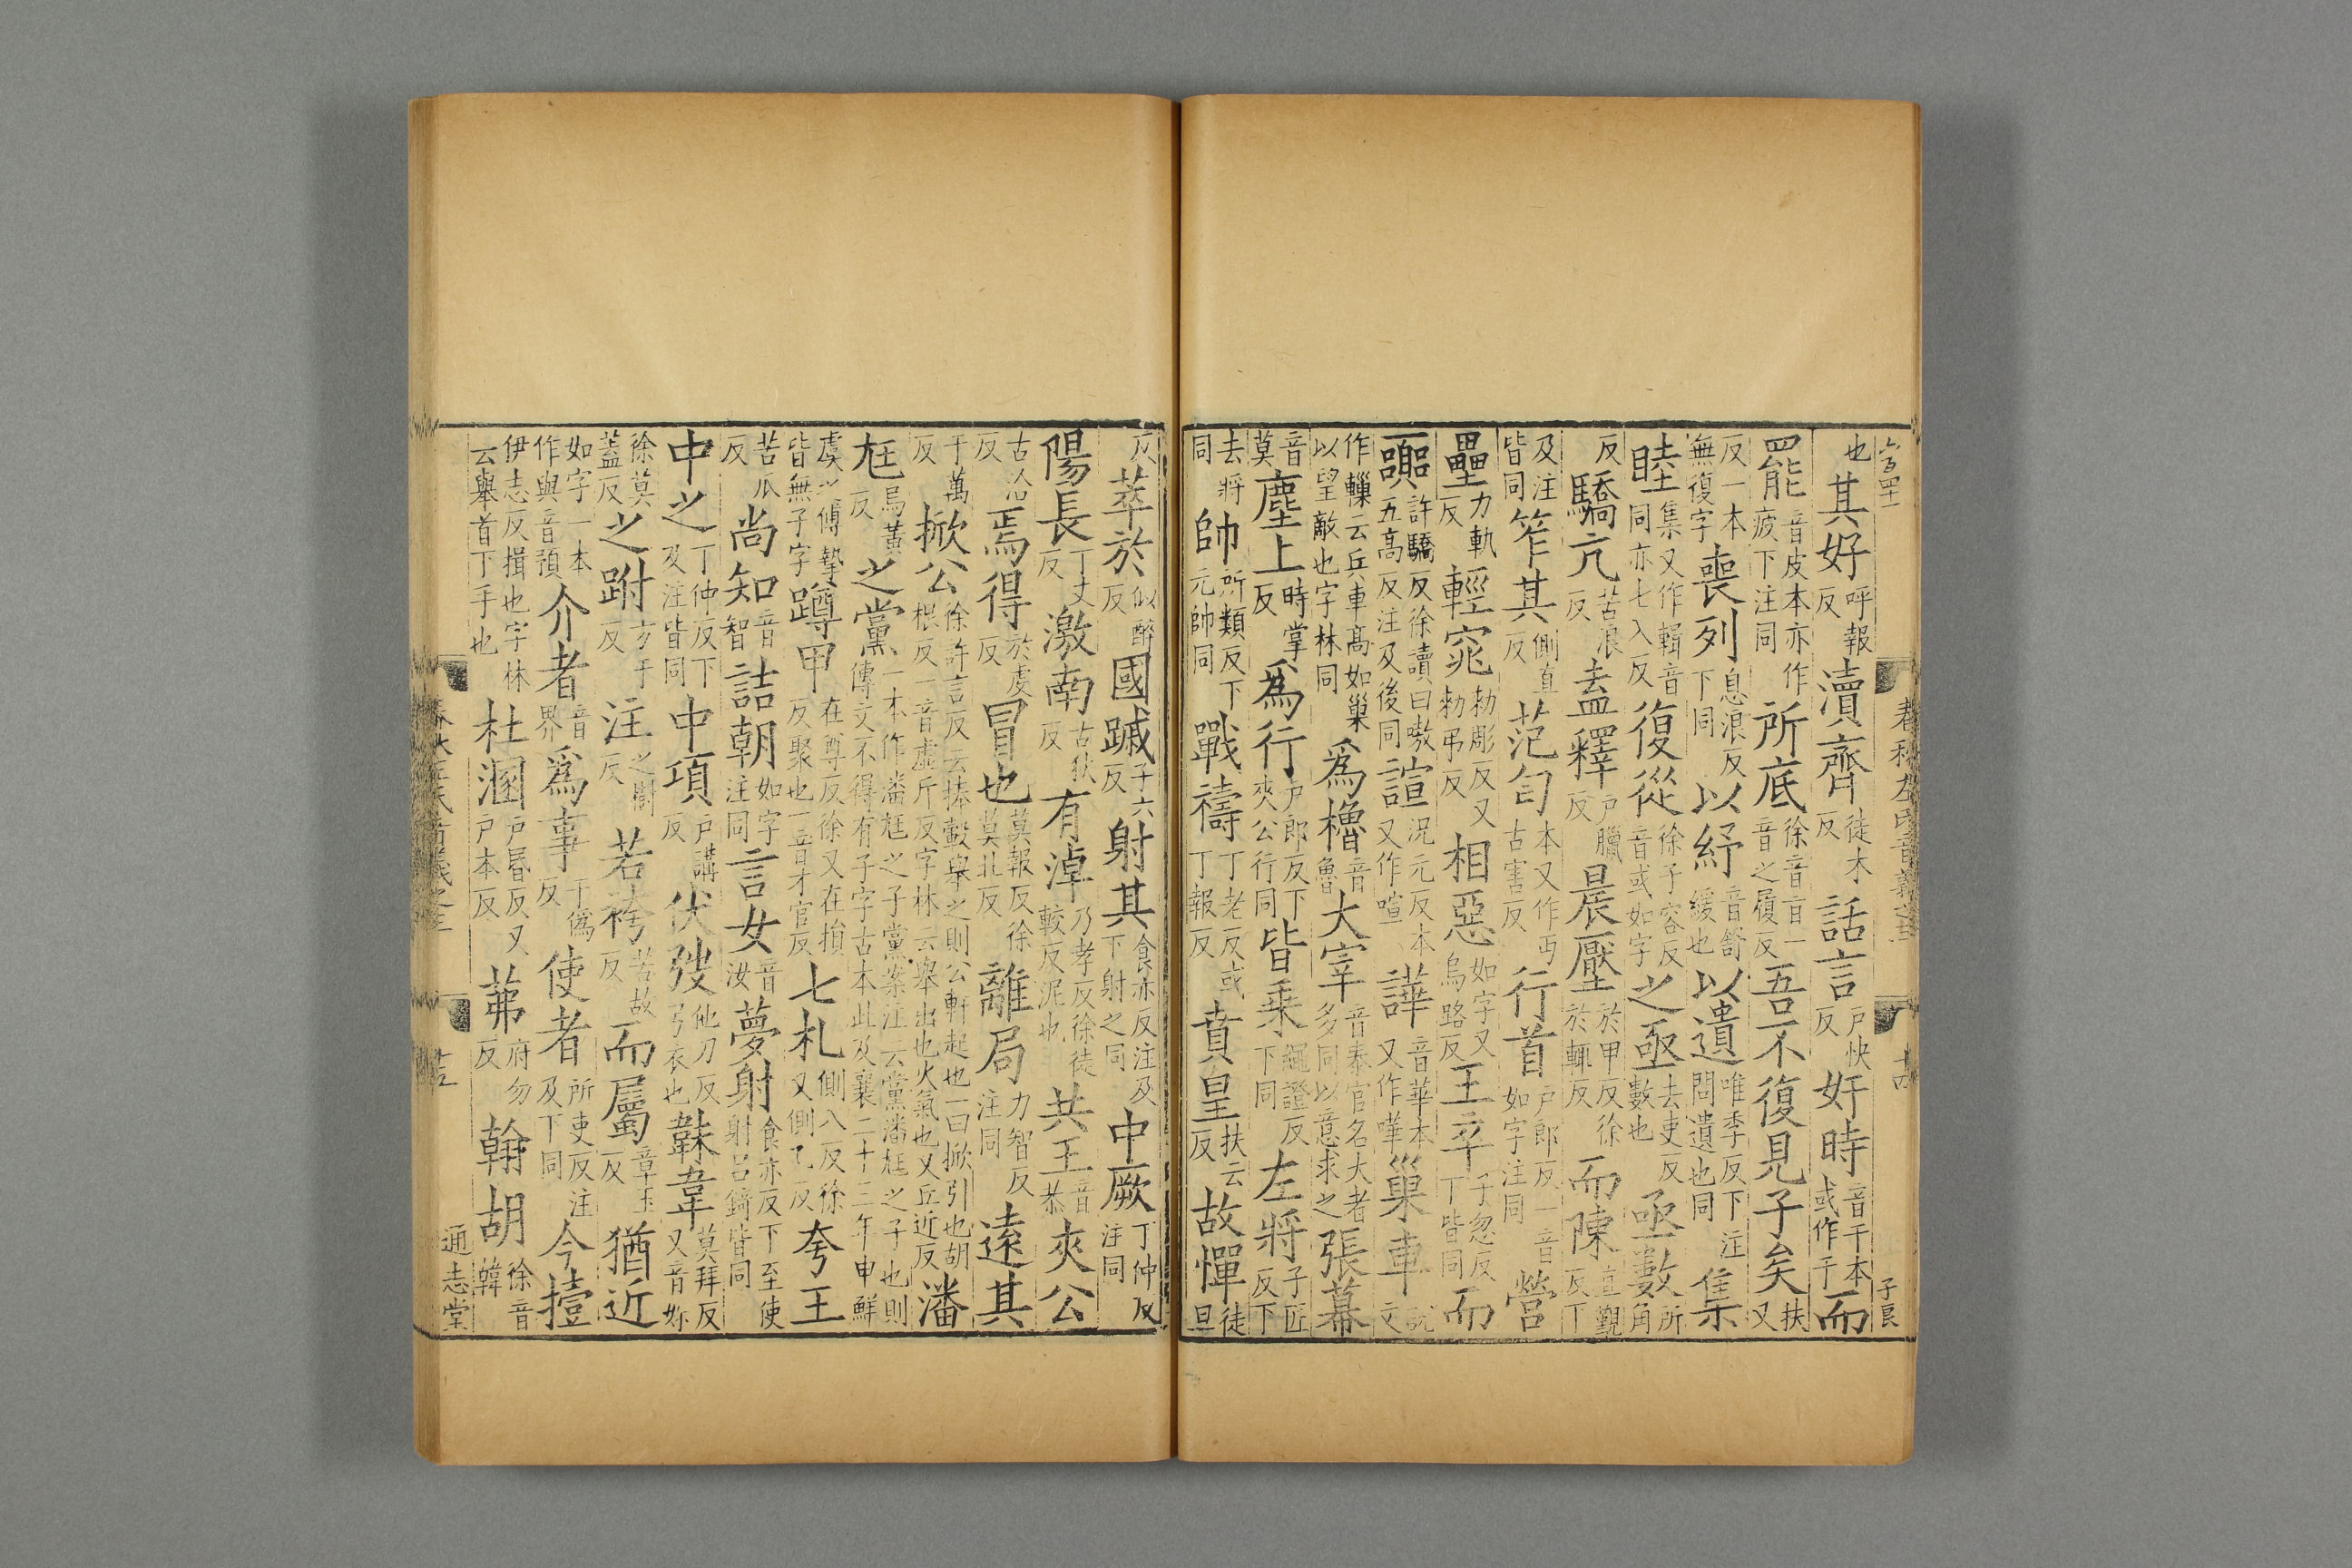 也其好呼報反瀆齊徒木反話言戶快反奸時音干本或作干而
罷音皮本亦作疲下注同所底徐音旨一音之履反吾不復見子矣扶又
反一本無復字喪列息浪反下同以紓音舒緩也以遺唯季反下注問遺也同集
睦集又作輯音同亦七入反復從徐子容反音或如字之亟去吏反數也亟數所角
反驕亢苦浪反蓋釋戶臘反晨壓於甲反徐於輒反而陳直覲反丁
及注皆同笮其側直反范匄本又作丏古害反行首戶郎反一音如字注同營
壘力軌反輕窕勑彫反又勑弔反相惡如字又烏路反王卒子忽反丁皆同而
嚻許驕反徐讀曰嗷五高反注及後同諠況元反本又作喧譁音華本又作嘩巢車說文
作轈云兵車高如巢以望敵也字林同爲櫓音魯大宰音泰官名大者多同以意求之張幕
音莫塵上時掌反爲行戶郎反下夾公行同皆乘繩證反下同左將子匠反下
去將同帥所類反下元帥同戰禱丁老反或丁報反賁皇扶云反故憚徒旦
反萃於似醉反國蹙子六反射其食亦反注及下射之同中厥丁仲反注同
陽長丁丈反激南古狄反有淖乃孝反徐徒較反泥也共王音恭夾公
古洽反焉得於虔反冒也莫報反徐莫北反離局力智反注同遠其
于萬反掀公徐許言反云捧轂舉之則公軒起也一曰掀引也胡根反一音虛斤反字林云舉出也火氣也又丘近反潘
尫烏黃反之黨一本作潘尫之子黨案注云黨潘尫之子也則傳文不得有子字古本此及襄二十三年申鮮
虞之傅摯皆無子字蹲甲在尊反徐又在損反聚也一音才官反七札側八反徐又側乙反夸王
苦瓜反尚知音智詰朝如字注同言女音汝夢射食亦反下至使射呂錡皆同
中之丁仲反下及注皆同中項戶講反伏弢他刀反弓衣也韎韋莫拜反又音妹
徐莫蓋反之跗方于反注之閏反若袴苦故反而屬章玉反猶近
如字一本作與音預介者音界爲事于僞反使者所吏反注及下同今撎
伊志反揖也字林云舉首下手也杜溷戶昬反又戶本反茀府勿反翰胡徐音韓
春秋左氏音義之三
子良
通志堂